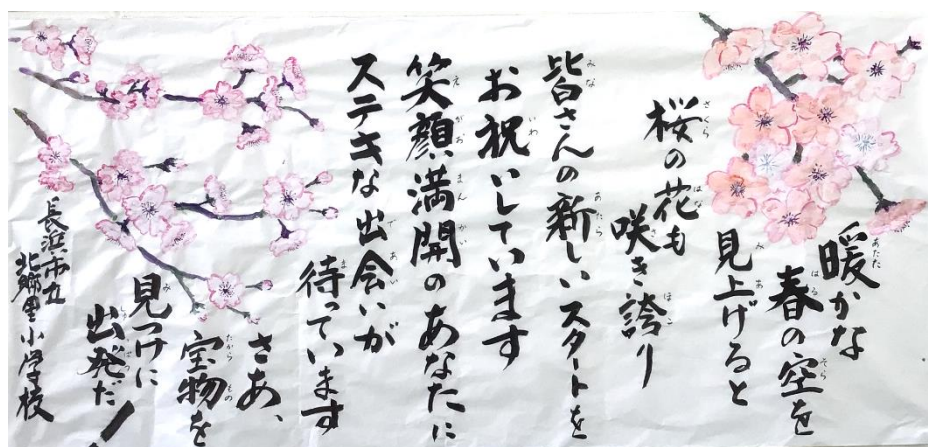 暖かな
春の空を
見上げると
桜の花も
咲き誇り
皆さんの新しいスタートを
お祝いしています
笑顔満開のあなたに
ステキな出会いが
待っています
さあ、
宝物を
見つけに
出発だ！
長浜市立
北郷里小学校